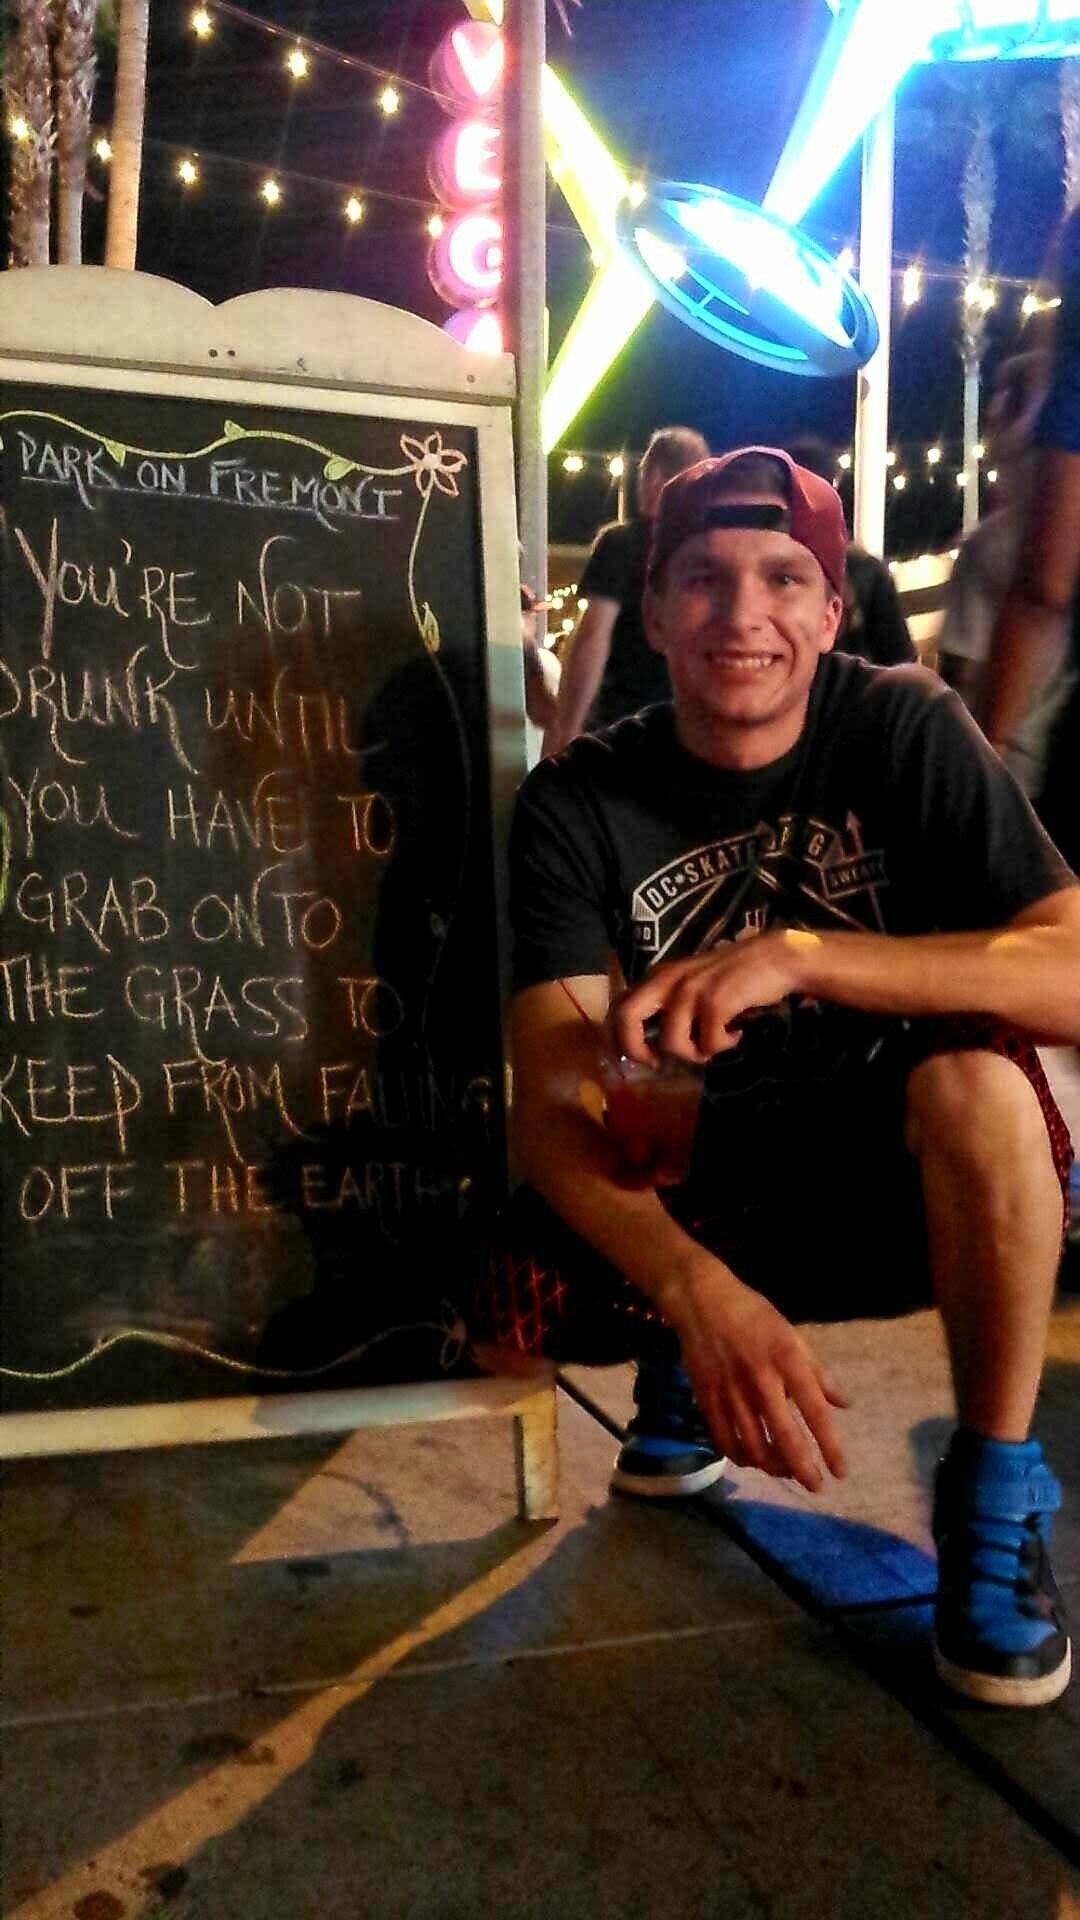 VEGA
PARK ON FREMONT
YOU'RE NOT
DRUNK UNTIL
YOU HAVE TO
GRAB ONTO
THE GRASS TO
KEEP FROM FALLING
OFF THE EARTH
DC★SKATE
SWEAT